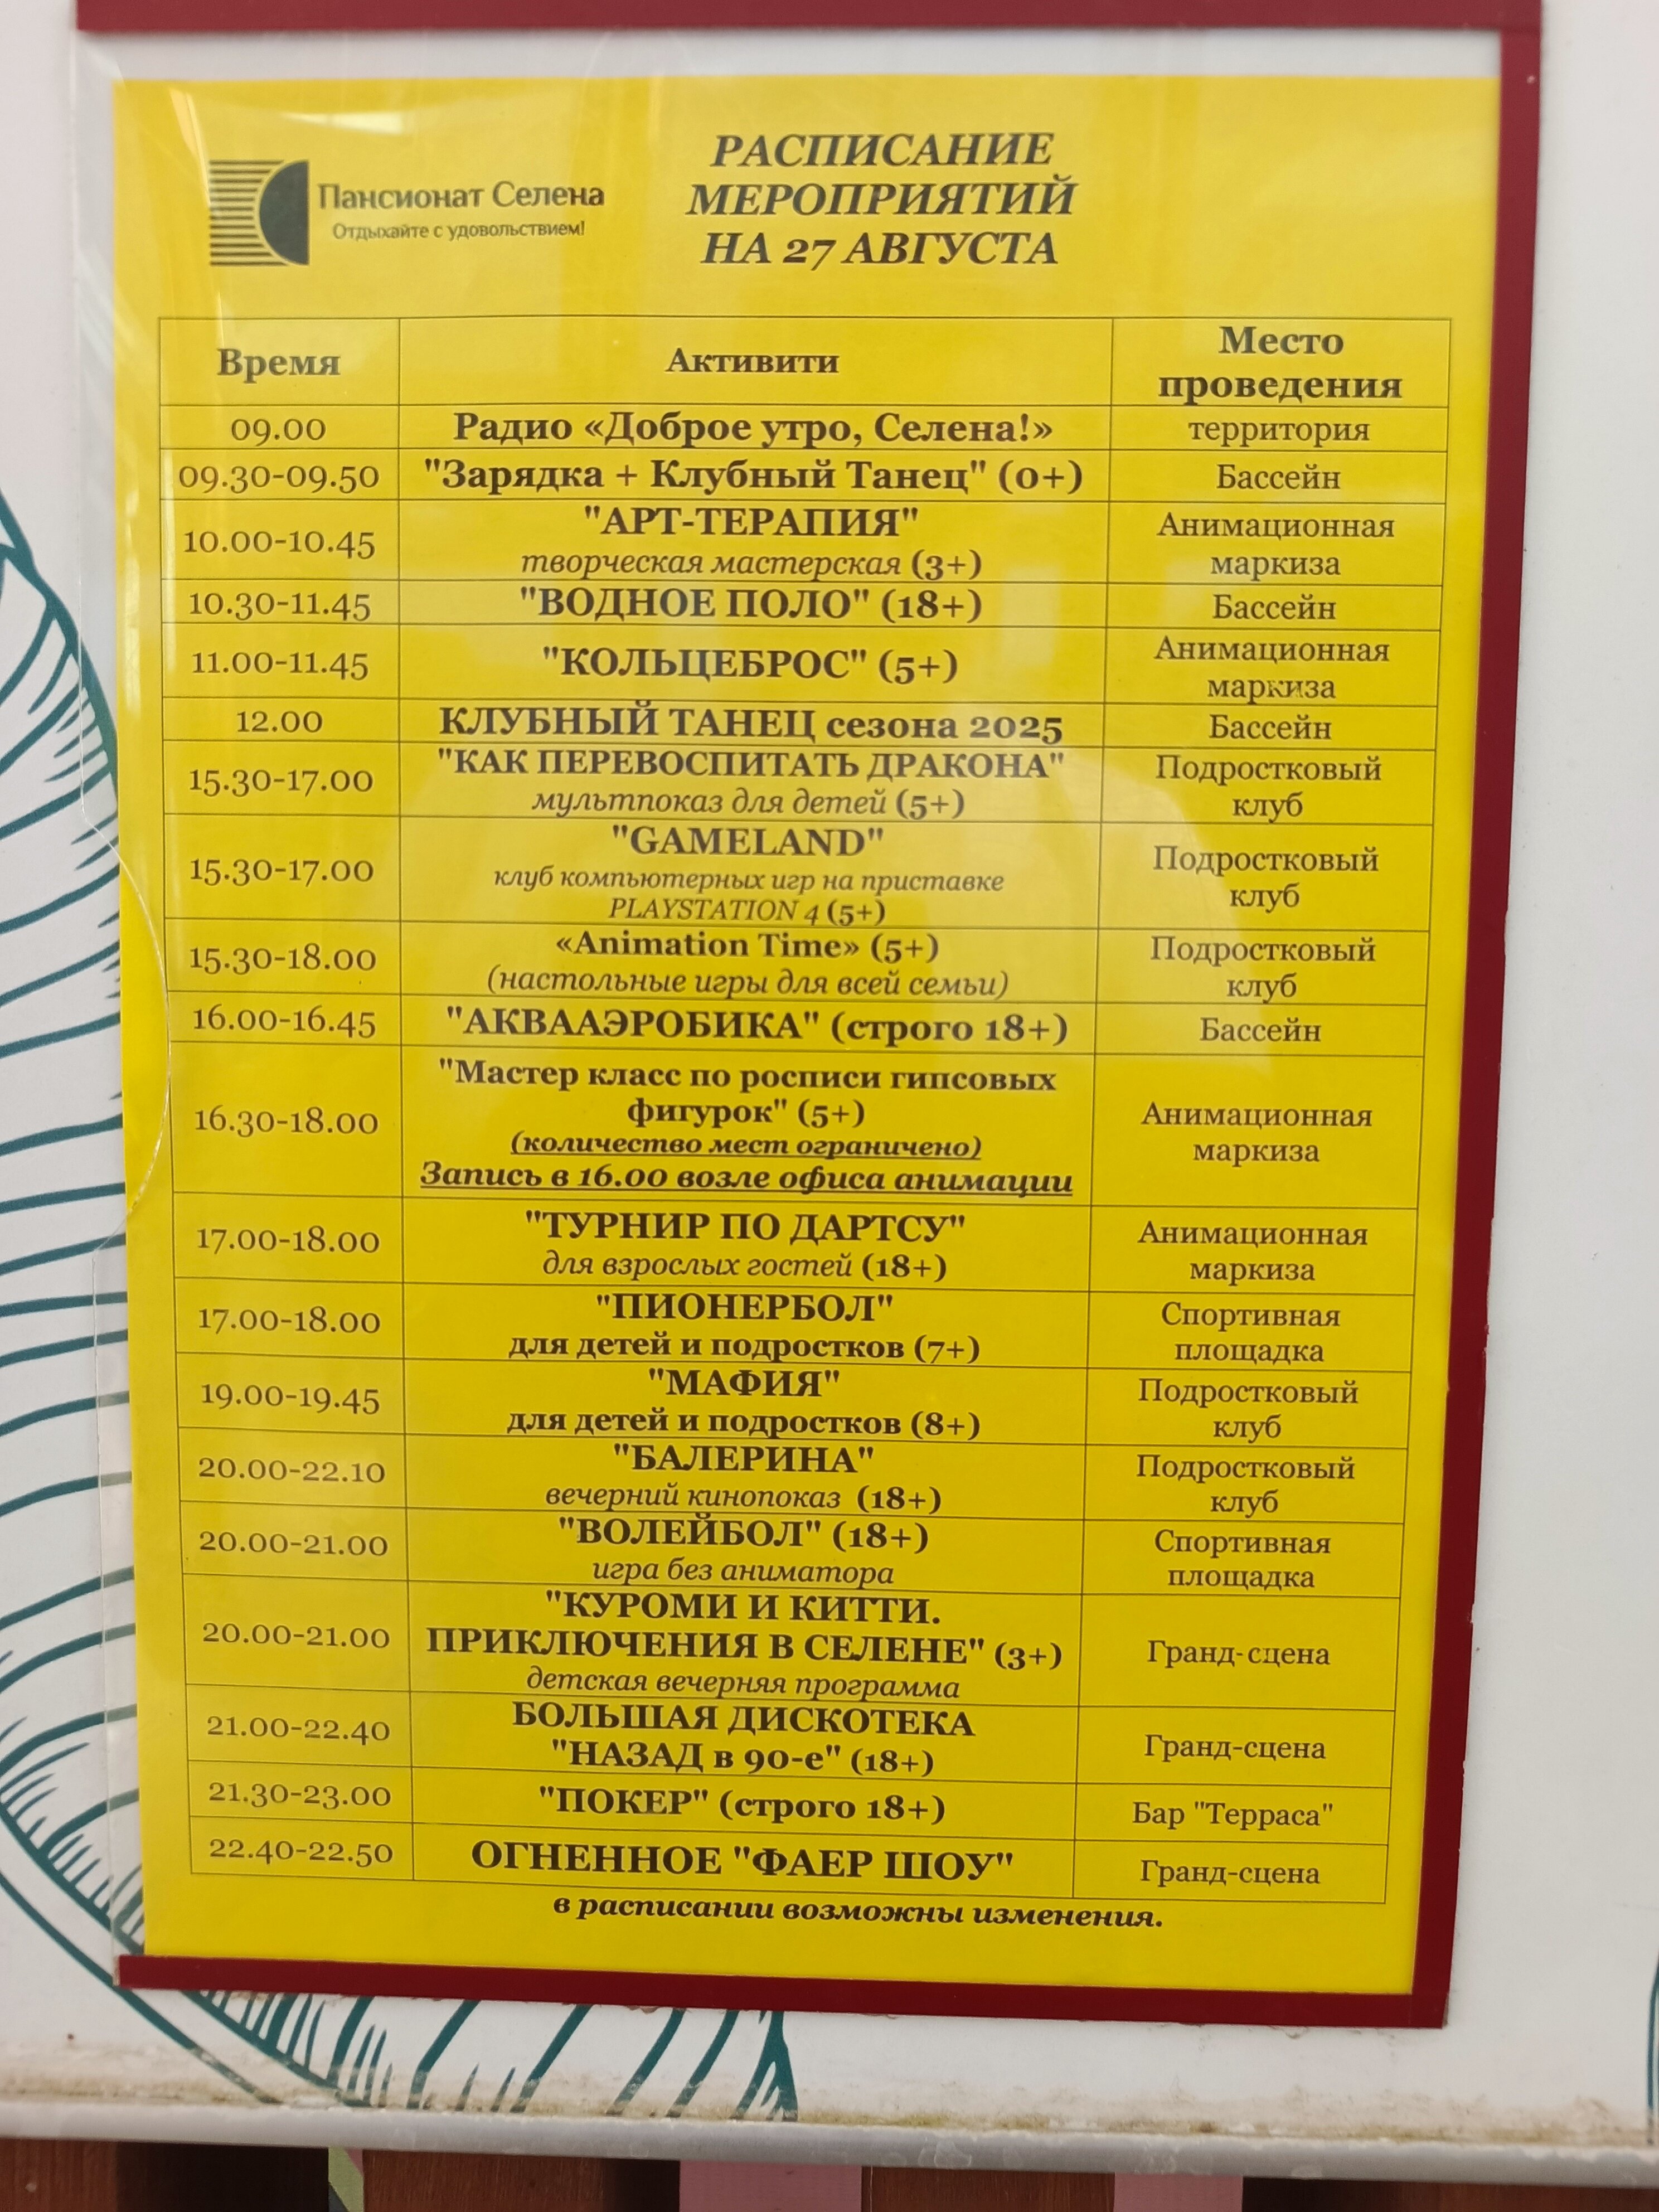 Пансионат Селена
Отдыхайте с удовольствием!
РАСПИСАНИЕ
МЕРОПРИЯТИЙ
НА 27 АВГУСТА
Время
Активити
Место
проведения
09.00
Радио «Доброе утро, Селена!»
территория
09.30-09.50
"Зарядка + Клубный Танец" (0+)
Бассейн
10.00-10.45
"АРТ-ТЕРАПИЯ"
творческая мастерская (3+)
Анимационная
маркиза
10.30-11.45
"ВОДНОЕ ПОЛО" (18+)
Бассейн
11.00-11.45
"КОЛЬЦЕБРОС" (5+)
Анимационная
маркиза
12.00
КЛУБНЫЙ ТАНЕЦ сезона 2025
Бассейн
15.30-17.00
"КАК ПЕРЕВОСПИТАТЬ ДРАКОНА"
мультпоказ для детей (5+)
Подростковый
клуб
15.30-17.00
"GAMELAND"
клуб компьютерных игр на приставке
PLAYSTATION 4 (5+)
Подростковый
клуб
15.30-18.00
«Animation Time» (5+)
(настольные игры для всей семьи)
Подростковый
клуб
16.00-16.45
"АКВААЭРОБИКА" (строго 18+)
Бассейн
16.30-18.00
"Мастер класс по росписи гипсовых
фигурок" (5+)
(количество мест ограничено)
Запись в 16.00 возле офиса анимации
Анимационная
маркиза
17.00-18.00
"ТУРНИР ПО ДАРТСУ"
для взрослых гостей (18+)
Анимационная
маркиза
17.00-18.00
"ПИОНЕРБОЛ"
для детей и подростков (7+)
Спортивная
площадка
19.00-19.45
"МАФИЯ"
для детей и подростков (8+)
Подростковый
клуб
20.00-22.10
"БАЛЕРИНА"
вечерний кинопоказ (18+)
Подростковый
клуб
20.00-21.00
"ВОЛЕЙБОЛ" (18+)
игра без аниматора
Спортивная
площадка
20.00-21.00
"КУРОМИ И КИТТИ.
ПРИКЛЮЧЕНИЯ В СЕЛЕНЕ" (3+)
детская вечерняя программа
Гранд-сцена
21.00-22.40
БОЛЬШАЯ ДИСКОТЕКА
"НАЗАД в 90-е" (18+)
Гранд-сцена
21.30-23.00
"ПОКЕР" (строго 18+)
Бар "Терраса"
22.40-22.50
ОГНЕННОЕ "ФАЕР ШОУ"
Гранд-сцена
в расписании возможны изменения.